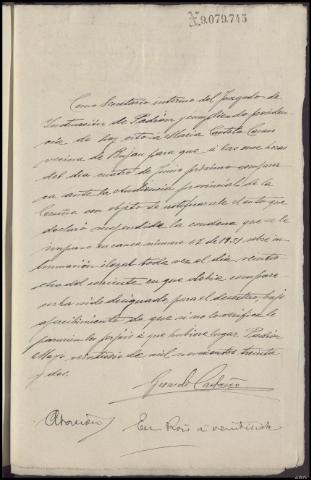 N.9.079.745
Como Secretario interino del Juzgado de
Instrucción de Padrón y cumpliendo providen
cia de hoy cito a María
vecina de Bujan para que a las once horas
del día cuatro de Junio próximo compa
ante la Audiencia provincial de la
Coruña con objeto de notificarle el auto que
declaró suspendida la condena que se le
impuso en causa número 68 de 1931 sobre in
humación ilegal toda vez el día veinti
ocho del corriente en que debía compare
ha sido designado para el
apercibimiento de que si no lo verifica le
parará los perjuicios a que hubiere lugar. Padrón
Mayo, veintiuno de mil novecientos treinta
y dos.
Gerardo
En Rois a veintiseis